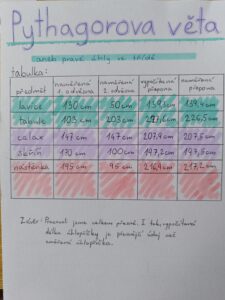 Pythagorova věta
aneb pravé úhly ve třídě
tabulka:
předmět naměřená 1. odvěsna naměřená 2. odvěsna vypočítaná přepona naměřená přepona
lavice 130 cm 50 cm 139,3 cm 139,4 cm
tabule 103 cm 203 cm 227,6 cm 226,5 cm
calax 147 cm 147 cm 207,9 cm 207,5 cm
skříň 170 cm 100 cm 197,2 cm
nástěnka 195 cm 95 cm 216,9 cm 217,2 cm
Závěr: Pracovali jsme celkem přesně. I tak, vypočítaná
délka úhlopříčky je přesnější údaj než
změřená úhlopříčka.